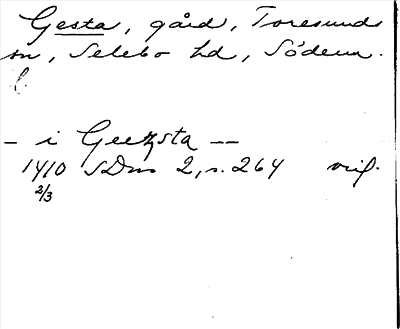 Gesta, gård, Toresunds
sn, Selebo hd, Söderm.
l
- i Geetzsta --
1410 SDns 2, s. 264 orig.
2/3